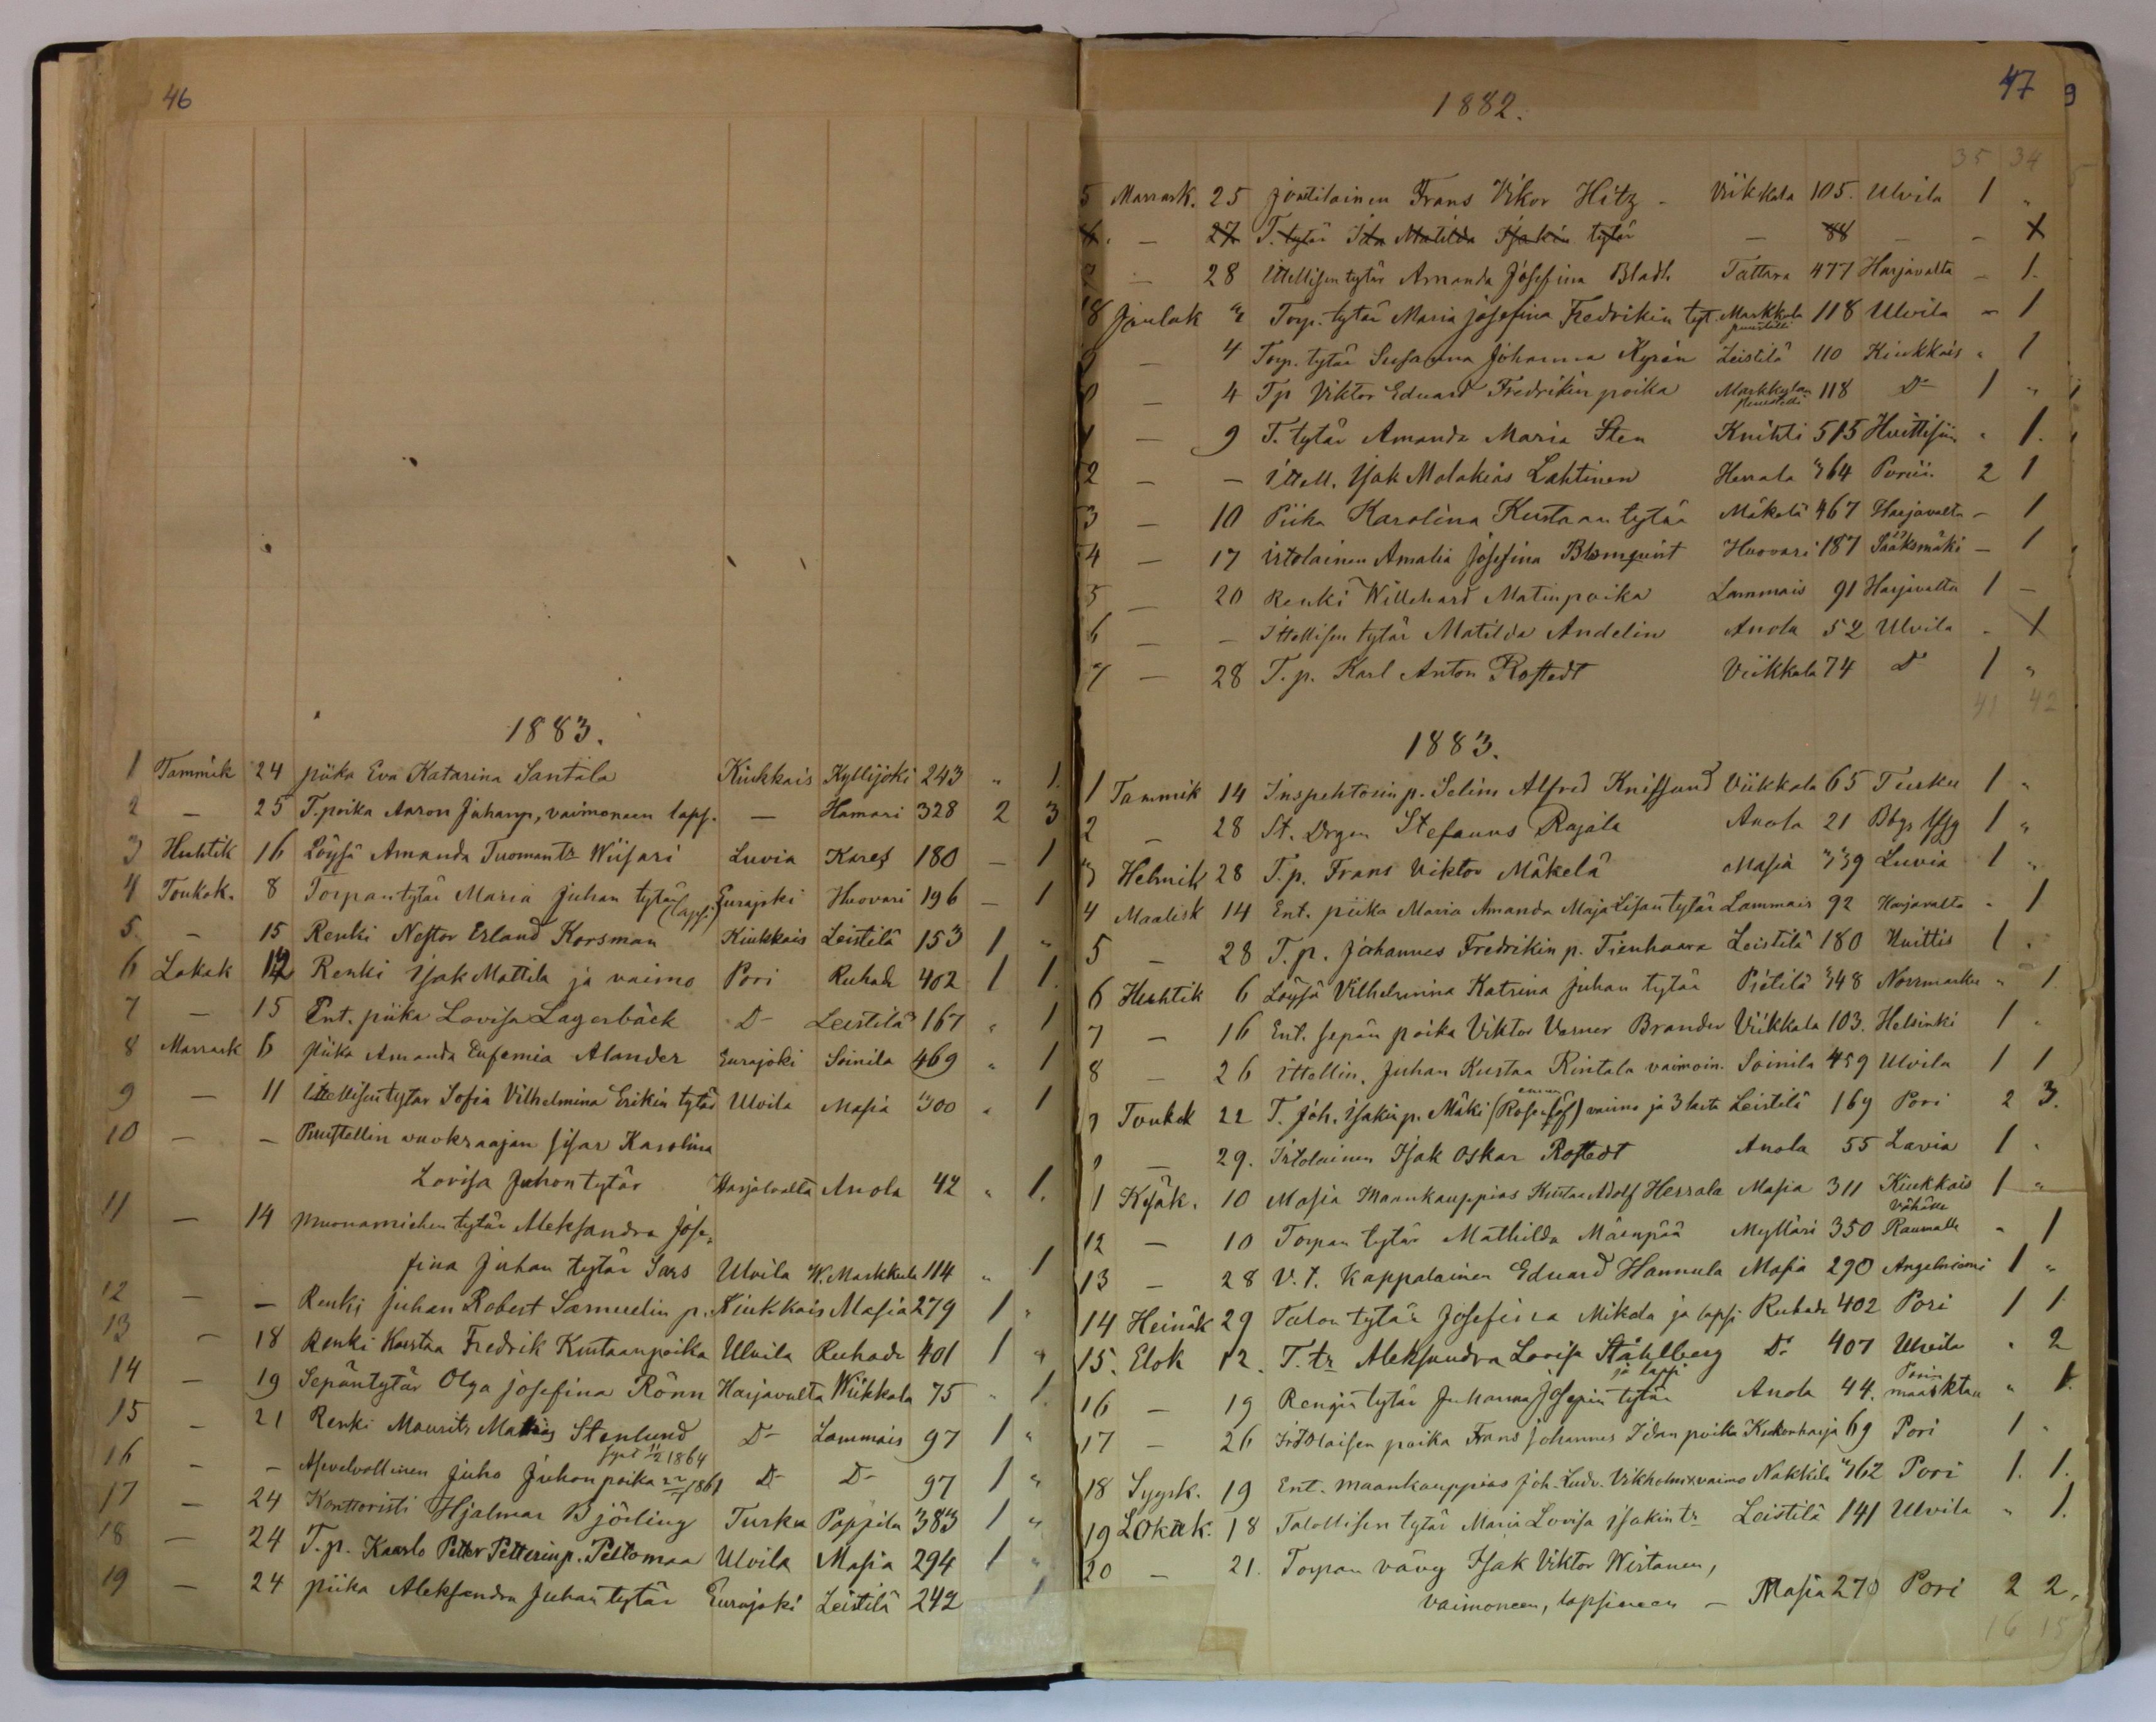 46
1883.
1 Tammik 24 piika Eva Katarina Santala Kiukkais Kyllijoki 243 " 1.
2 — 25 T.poika Aaron Juhanp, vaimoneen laps. — Hamari 328 2 3
3 Huhtik 16 Löysä Amanda Tuomantr Wiisari Luvia Kares 180 — 1
4 Toukok. 8 Torpantytär Maria Juhan tytär (lapsi) Eurajoki Huovari 196 — 1
5. — 15 Renki Nestor Erland Korsman Kiukkais Leistilä 153 1 "
6 Lokak 12 Renki Isak Mattila ja vaimo Pori Ruhade 402 1 1.
7 — 15 Ent. piika Lovisa Lagerbäck D- Leistilä 167 " 1
8 Marrask 6 piika Amanda Eufemia Alander Eurajoki Soinila 469 " 1
9 — 11 Ittellisen tytär Sofia Vilhelmina Erikin tytär Ulvila Masia 300 " 1
10 — — Puustellin vuokraajan sisar Karolina
Lovisa Juhon tytär Harjavalta Anola 42 " 1.
11 — 14 Muonamiehen tytär Aleksandra Jose=
fina Juhan tytär Sars Ulvila W. Markkula 114 " 1
12 — — Renki Juhan Robert Samuelin p. Kiukkais Masia 279 1 "
13 — 18 Renki Kustaa Fredrik Kustaanpoika Ulvila Ruhade 401 1 "
14 — 19 Sepäntytär Olga Josefina Rönn Harjavalta Wiikkala 75 " 1.
15 — 21 Renki Maurits Mattias Stenlund D- Lammais 97 1 "
synt 11/2 1864
16 — — Asevelvollinen Juho Juhonpoika 22/7 1861 D- D- 97 1 "
17 — 24 Konttoristi Hjalmar Björling Turku Pappila 383 1 "
18 — 24 T.p. Kaarlo Petter Petterinp. Peltomaa Ulvila Masia 294 1 "
19 — 24 piika Aleksandra Juhan tytär Eurajoki Leistilä 242 1
47
1882.
35 34
5 Marrask. 25 Joutilainen Frans Vikor Hitz - Viikkala 105. Ulvila 1 "
6. — 27 T. tytär Ida Matilda Isakin tytär — 88 — — 1
— 28 Ittellisen tytär Amanda Josefina Bladh Tattara 477 Harjavalta — 1.
8 Jouluk Torp. tytär Maria Josefina Fredrikin tyt. Markkula puustelli 118 Ulvila — 1
9 — 4 Torp. tytär Susanna Johanna Kyrén Leistilä 110 Kiukkais " 1
0 — 4 Tp Viktor Eduard Fredrikin poika Markkulan puustelli 118 D- 1 "
1 — 9 T. tytär Amanda Maria Sten Knihti 515 Huittisiin " 1.
2 — — Ittell. Isak Malakias Lahtinen Herrala 364 Poriin 2 1
3 — 10 Piika Karolina Kustaan tytär Mäkelä 467 Harjavalta — 1
4 — 17 Irtolainen Amalia Josefina Blomqvist Huovari 187 Sääksmäki — 1
5 — 20 Renki Willehard Matinpoika Lammais 91 Harjavalta 1 —
6 — — Ittellisen tytär Matilda Andelin Anola 52 Ulvila . 1
7 — 28 T. p. Karl Anton Rostedt Viikkala 74 D- 1 "
41 42
1883.
1 Tammik 14 Inspehtorin p. Selim Alfred Knifsund Viikkala 65 Turku 1 "
2 — 28 St. Drgen Stefanus Rajala Anola 21 1 "
3 Helmik 28 T. p. Frans Viktor Mäkelä Masia 339 Luvia 1 "
4 Maalisk 14 Ent. piika Maria Amanda Maja Lisan tytär Lammais 92 Harjavalta " 1
5 — 28 T. p. Johannes Fredrikin p. Tienhaara Leistilä 180 Huittis 1 .
6 Huhtik 6 Löysä Vilhelmina Katrina Juhan tytär Pietilä 348 Norrmarkku " 1
7 — 16 Ent. sepän poika Viktor Verner Brander Viikkala 103. Helsinki 1 .
8 — 26 Ittellin. Juhan Kustaa Rintala vaimoin. Soinila 459 Ulvila 1 1
9 Toukok 22 T. Joh. Isakin p. Mäki vaimo ja 3 lasta Leistilä 169 Pori 2 3.
— 29. Irtolainen Isak Oskar Rostedt Anola 55 Lavia 1 .
1 Kesäk. 10 Masia Maankauppias Kustaa Adolf Herrala Masia 311 Kiukkais 1 "
12 — 10 Torpan tytär Mathilda Mäenpää Mylläri 350 Vähään Raumalle " 1
13 — 28 V. t. Kappalainen Eduard Hannula Masia 290 Angelniemi 1 "
14 Heinäk 29 Talon tytär Josefiina Mikola ja lapsi Ruhade 402 Pori 1 1
15. Elok 12. T. tr Aleksandra Lovisa Ståhlberg ja lapsi D: 407 Ulvila " 2
16 — 19 Rengin tytär Johanna Josepin tytär Anola 44. Porin maasktan " 1.
17 — 26 Irtolaisen poika Frans Johannes Idan poika Kukonharja 69 Pori 1 "
18 Syysk. 19 Ent. maankauppias Joh. Ludv. Vikholm x vaimo Nakkila 362 Pori 1. 1.
19 Lokak. 18 Talollisen tytär Maria Lovisa Isakin tr Leistilä 141 Ulvila " 1.
20 — 21. Torpan vävy Isak Viktor Wirtanen,
vaimoneen, lapsineen — Masia 270 Pori 2 2.
16 15